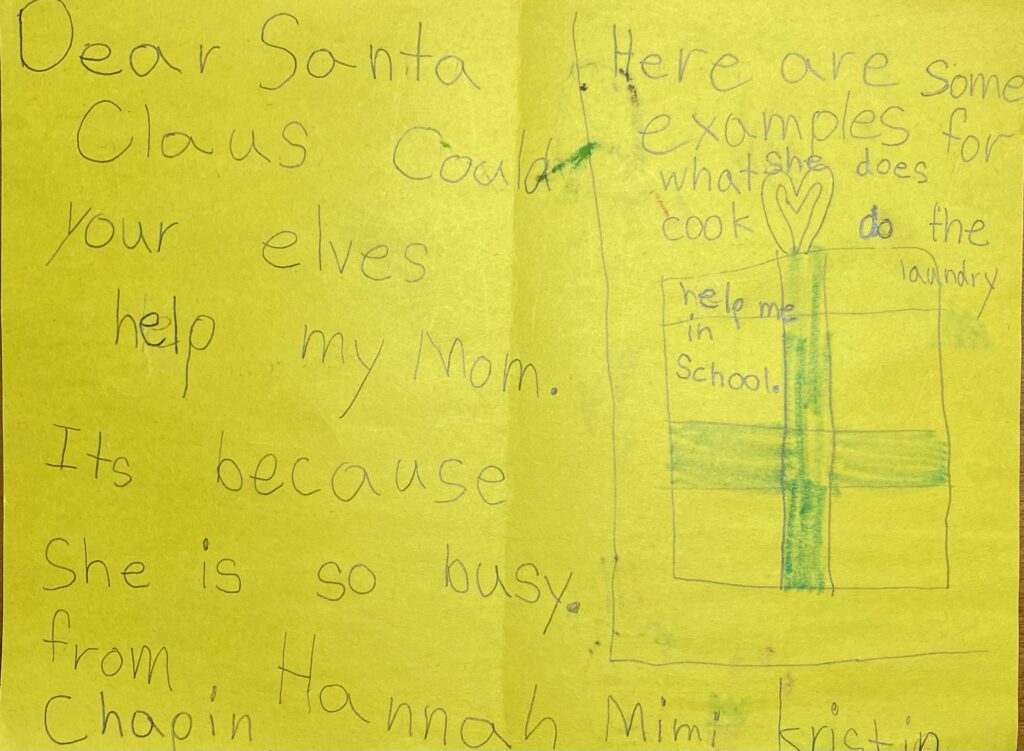 Dear Santa
Claus Could
your elves
help my Mom.
Its because
She is so busy.
from Hannah Mimi kristin
Chapin
Here are some
examples for
what she does
cook do the
laundry
help me
in
School.